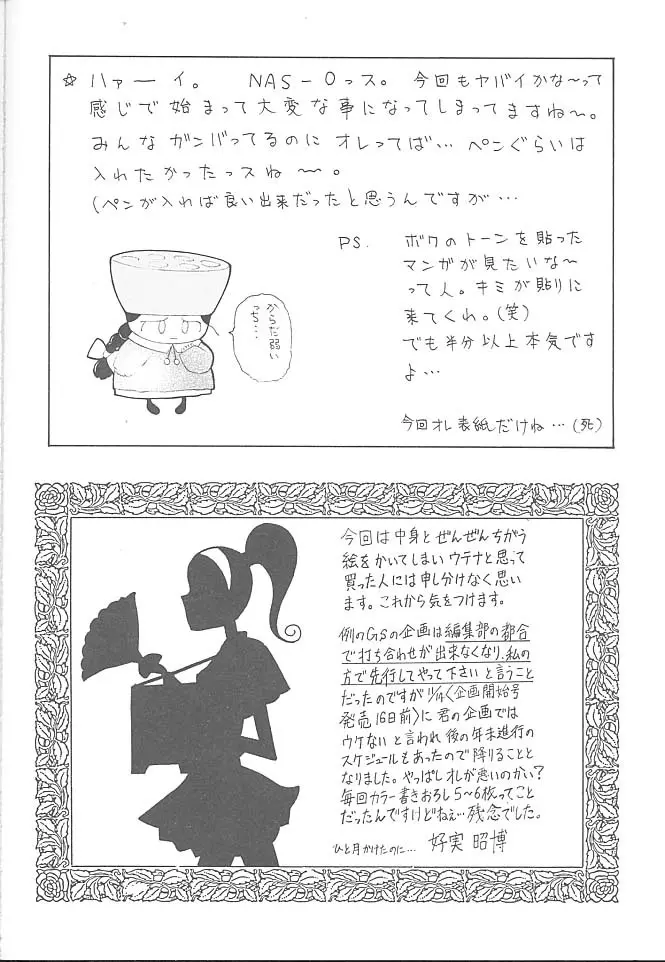 ☆ハァーイ。 NAS-Oっス。今回もヤバイかな〜って
感じで始まって大変な事になってしまってますね〜。
みんなガンバってるのに オレってば… ペンぐらいは
入れたかったっスね 〜。
(ペンが入れば良い出来だったと思うんですが…
PS. ボクのトーンを貼った
マンガが見たいな〜
って人。キミが貼りに
来てくれ。(笑)
でも半分以上本気です
よ…
からだ弱い
っち…
今回オレ表紙だけね…(死)
今回は中身とぜんぜんちがう
絵をかいてしまいウテナと思って
買った人には申し分けなく思い
ます。これから気をつけます。
例のGSの企画は編集部の都合
で打ち合わせが出来なくなり、私の
方で先行してやって下さいと言うこと
だったのですが 11/14〈企画開始号
発売16日前〉に君の企画では
ウケないと言われ後の年末進行の
スケジュールもあったので降りることと
なりました。やっぱしオレが悪いのかい?
毎回カラー書きおろし5〜6枚ってこと
だったんですけどねぇ…残念でした。
ひと月かけたのに… 好実昭博